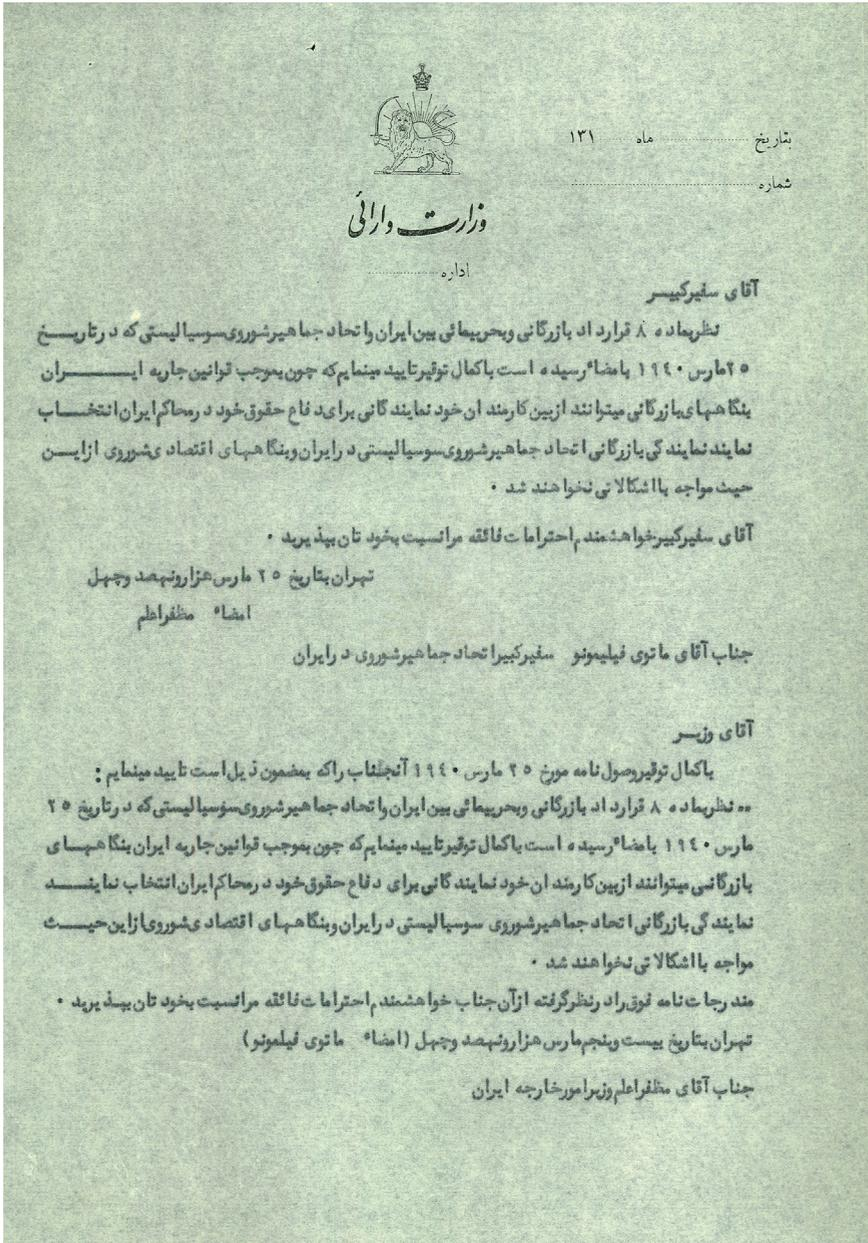 بتاریخ ........ ماه ........ ۱۳۱
شماره ........
وزارت دارائی
اداره ........
آقای سفیرکبیر
نظربماده ۸ قرارداد بازرگانی وبحرپیمائی بین ایران واتحاد جماهیرشوروی سوسیالیستی که درتاریخ
۲۵ مارس ۱۹٤۰ بامضاء رسیده است باکمال توقیرتایید مینمایم که چون بموجب قوانین جاریه ایران
بنگاههای بازرگانی میتوانند ازبین کارمندان خود نمایندگانی برای دفاع حقوق خود درمحاکم ایران انتخاب
نمایند نمایندگی بازرگانی اتحاد جماهیرشوروی سوسیالیستی درایران وبنگاههای اقتصادی شوروی ازاین
حیث مواجه بااشکالاتی نخواهند شد ۰
آقای سفیرکبیرخواهشمندم احترامات فائقه مرانسبت بخودتان بپذیرید ۰
تهران بتاریخ ۲۵ مارس هزارونهصد وچهل
امضاء مظفراعلم
جناب آقای ماتوی فیلیمونو سفیرکبیراتحاد جماهیرشوروی درایران
آقای وزیر
باکمال توقیروصول نامه مورخ ۲۵ مارس ۱۹٤۰ آنجناب راکه بمضمون ذیل است تایید مینمایم :
"" نظربماده ۸ قرارداد بازرگانی وبحرپیمائی بین ایران واتحاد جماهیرشوروی سوسیالیستی که درتاریخ ۲۵
مارس ۱۹٤۰ بامضاء رسیده است باکمال توقیرتایید مینمایم که چون بموجب قوانین جاریه ایران بنگاههای
بازرگانی میتوانند ازبین کارمندان خود نمایندگانی برای دفاع حقوق خود درمحاکم ایران انتخاب نمایند
نمایندگی بازرگانی اتحاد جماهیرشوروی سوسیالیستی درایران وبنگاههای اقتصادی شوروی ازاین حیث
مواجه بااشکالاتی نخواهند شد ۰
مندرجات نامه فوق رادرنظرگرفته ازآن جناب خواهشمندم احترامات فائقه مرانسبت بخودتان بپذیرید ۰
تهران بتاریخ بیست وپنجم مارس هزارونهصد وچهل (امضاء ماتوی فیلمونو)
جناب آقای مظفراعلم وزیرامورخارجه ایران